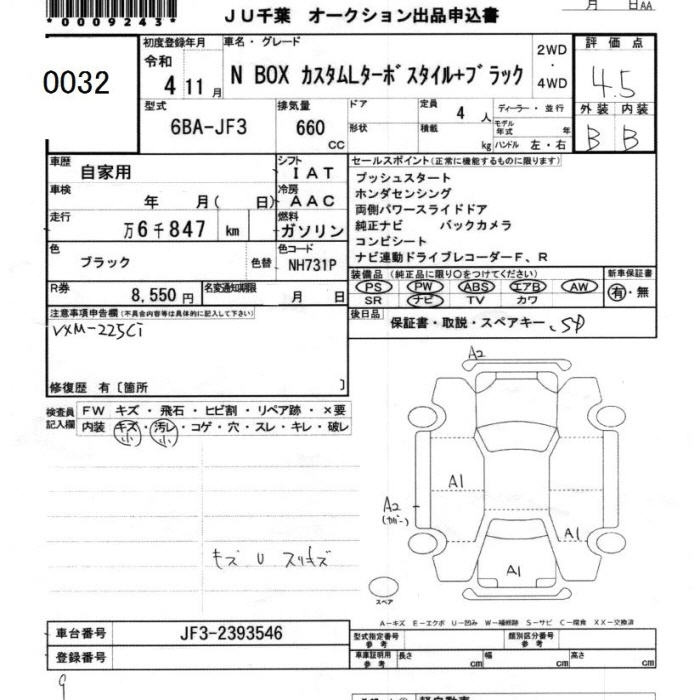 *0009243*
JU千葉 オークション出品申込書
月 日AA
0032
初度登録年月
令和 4 11 月
車名・グレード
N BOX カスタムLターボスタイル+ブラック
2WD ・ 4WD
評価点
4.5
外装 内装
B B
型式
6BA-JF3
排気量
660 CC
ドア
形状
定員 4 人
積載 kg
ディーラー・並行
モデル年式 年
ハンドル 左・右
車歴 自家用
シフト IAT
車検 年 月( 日)
冷房 AAC
走行 万6千847 km
燃料 ガソリン
色 ブラック 色替
色コード NH731P
R券 8,550円
名変通知期限 月 日
セールスポイント(正常に機能するものに限ります)
プッシュスタート
ホンダセンシング
両側パワースライドドア
純正ナビ バックカメラ
コンビシート
ナビ連動ドライブレコーダーF、R
装備品 (純正品に限り○をつけてください)
PS PW ABS エアB AW
SR ナビ TV カワ
新車保証書
有・無
後日品 保証書・取説・スペアキー、SD
注意事項申告欄(不具合内容等は具体的に記入して下さい)
VXM-225Ci
修復歴 有〔箇所 〕
検査員記入欄
FW キズ・飛石・ヒビ割・リペア跡・×要
内装 キズ・汚レ・コゲ・穴・スレ・キレ・破レ
小 小
キズ U スリキズ
A2
A1
A2
(カバー)
A1
A1
スペア
A-キズ E-エクボ U-凹み W-補修跡 S-サビ C-腐食 XX-交換済
車台番号 JF3-2393546
登録番号
型式指定番号 参考
類別区分番号 参考
車庫証明用 参考 長さ cm 幅 cm 高さ cm
9
軽自動車